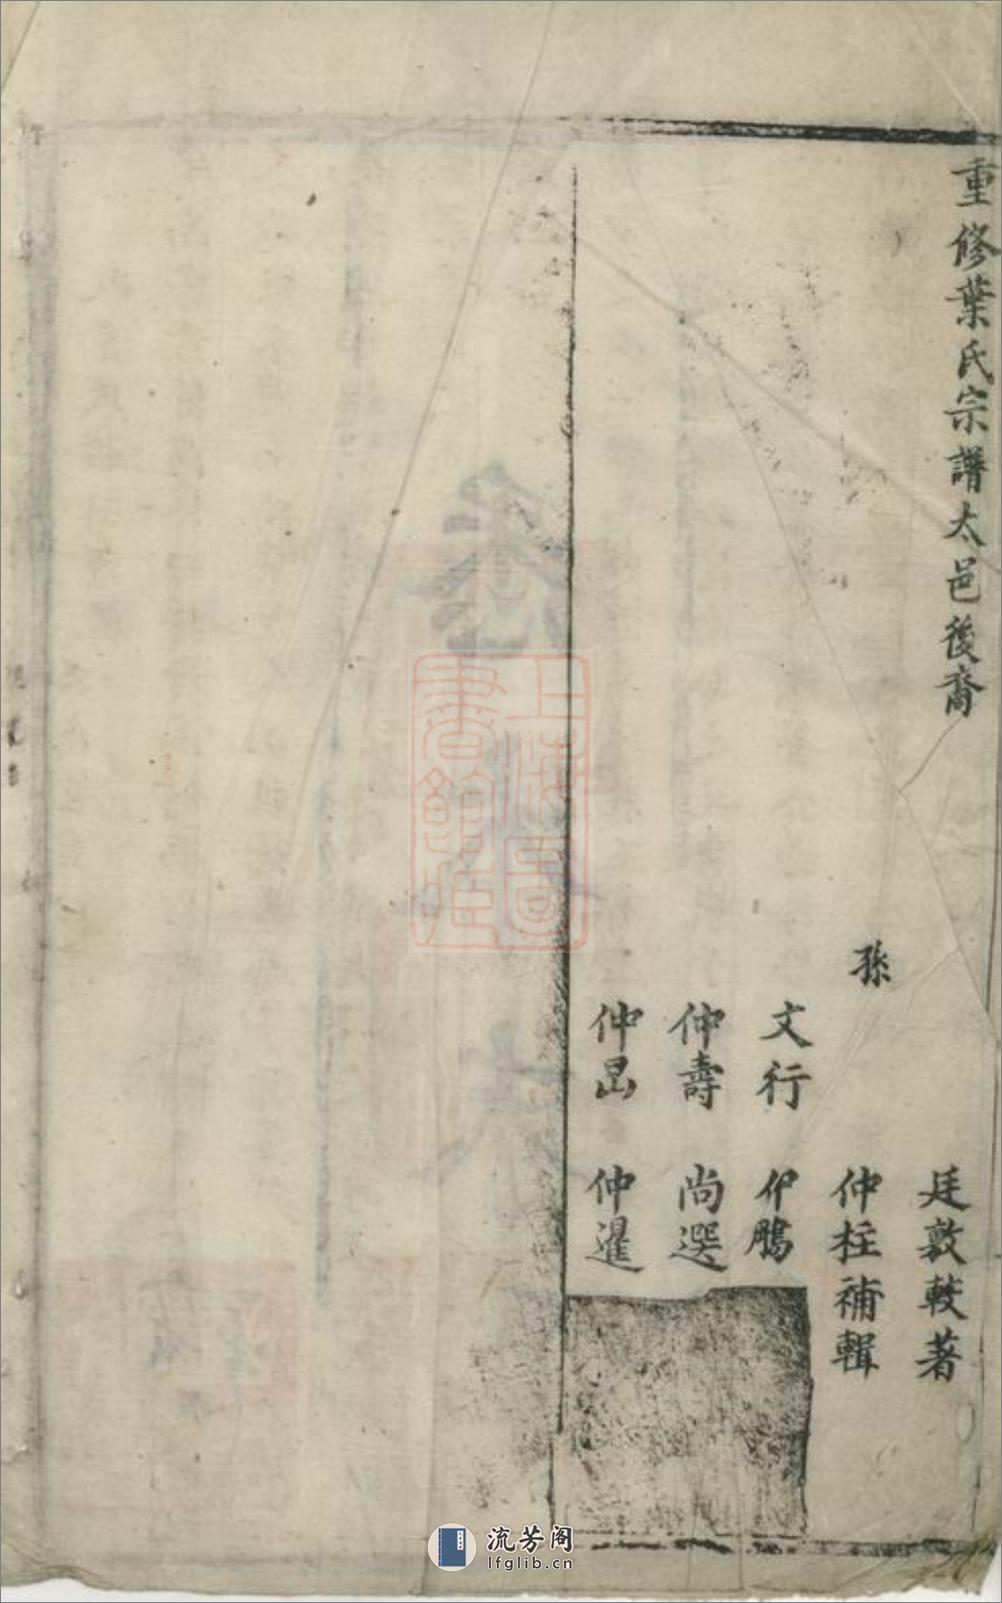 重修葉氏宗譜太邑後裔
廷敦較著
孫
仲柱補輯
文行 仲鵰
仲壽 尚選
仲昆 仲暹
上海圖書館藏
流芳阁
lfglib.cn